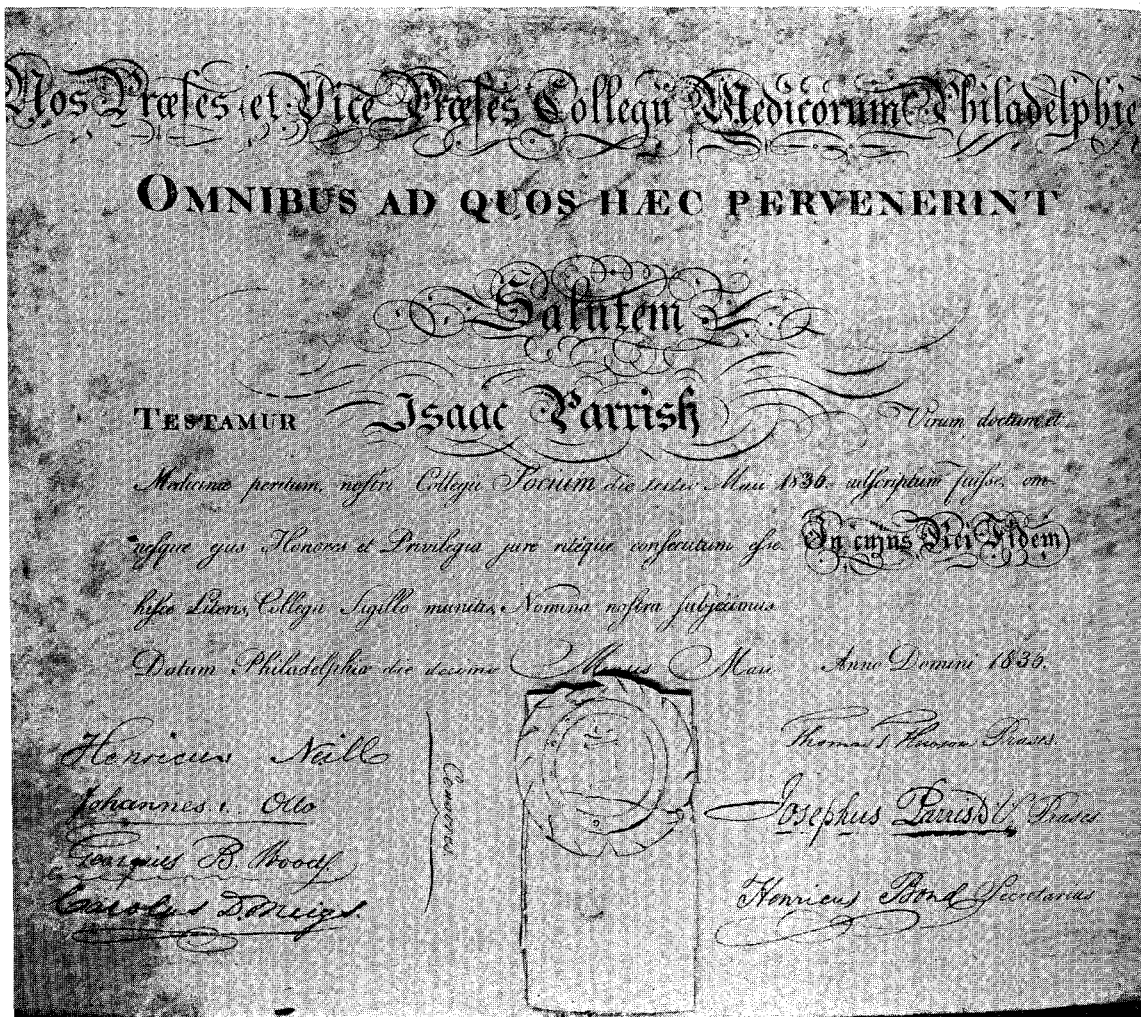 Nos Præses et Vice Præses Collegii Medicorum Philadelphie
OMNIBUS AD QUOS HÆC PERVENERINT
Salutem
TESTAMUR Isaac Parrish Virum doctum et
Medicinæ peritum, nostri Collegii Socium die Maii 1836. adscriptum fuisse, om-
nesque ejus Honores et Privilegia jure ritèque consecutum esse In cujus Rei Fidem
hisce Literis, Collegii Sigillo munitis, Nomina nostra subjecimus
Datum Philadelphiæ die decimo Maii Anno Domini 1836.
Henricus Neill
Johannes Otto
Georgius B. Wood
Carolus D. Meigs.
Censores
Thomas Hewson Præses.
Josephus Parrish V. Præses
Henricus Bond Secretarius